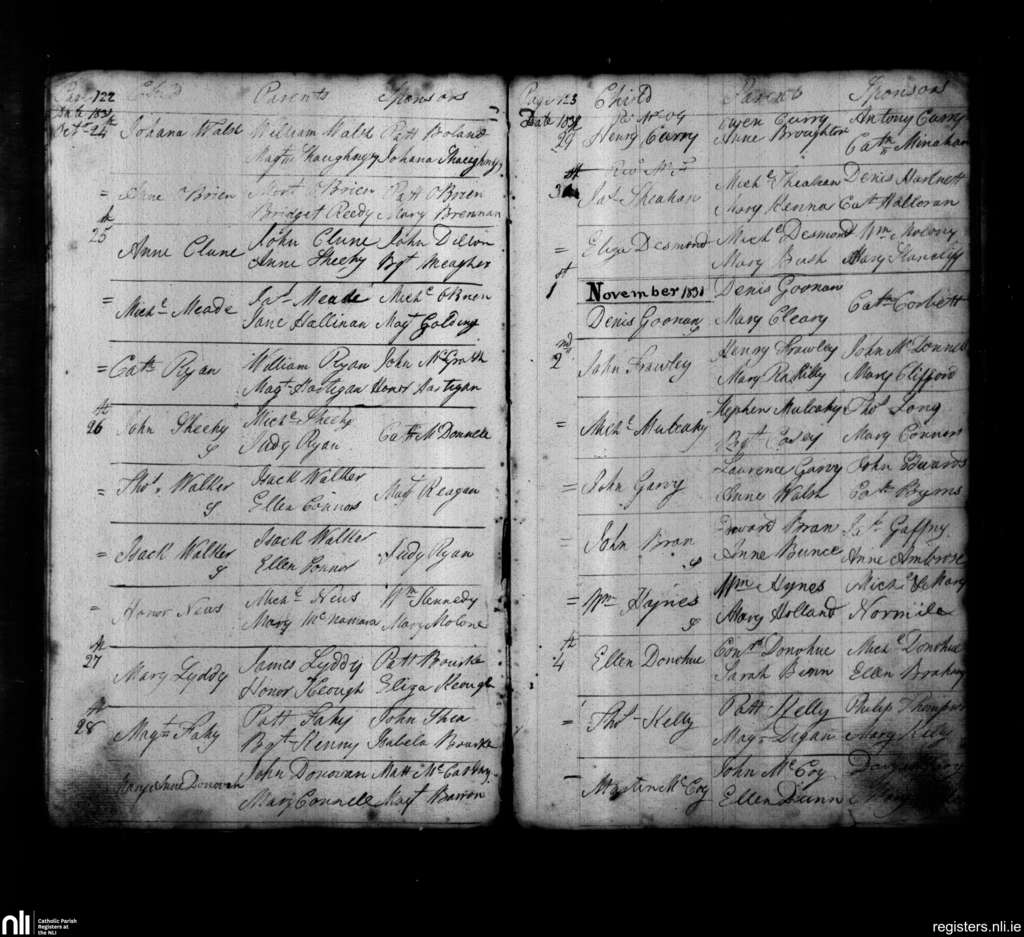 Page 122 Child Parents Sponsors
Date 1831
Octr 24th Johana Walsh William Walsh Patt Boland
Magt Shaughnyy Johana Shaughnyy
= Jane O'Brien Mort O'Brien Patt O'Brien
Bridget Reedy Mary Brennan
25th Anne Clune John Clune John Dillon
Anne Sheehy Bgt Meagher
= Michl Meade Jas Meade Michl O'Brien
Jane Hallinan Magt Golding
= Cath Ryan William Ryan John McGrath
Magt Hartigan Honor Hartigan
26th John Sheehy Michl Sheehy
Judy Ryan Cath McDonnell
= Thos Walker Isack Walker
Ellen Connors Magt Reagan
= Isack Walker Isack Walker
Ellen Connor Judy Ryan
= Honor Neus Michl Neus Wm Kennedy
Mary McNamara Mary Molone
27th Mary Lyddy James Lyddy Patt Bourke
Honor Keough Eliza Keough
28th Magt Fahy Patt Fahy John Shea
Bgt Kenny Isabela Bourke
Mary Anne Donovan John Donovan Matt
Mary Connell Magt Barron
Page 123 Child Parents Sponsors
Date 1831
29 Henry Curry Owen Curry Antony Curry
Anne Broughton Cath Minahan
Jas Sheahan Michl Sheahan Denis Hartnett
Mary Kenna Cat Halloran
= Eliza Desmond Michl Desmond Wm Molony
Mary Bush Mary
1st November 1831 Denis Goonan
Denis Goonan Mary Cleary Cath Corbett
2nd John Frawley Henry Frawley John McDonnell
Mary Rahilly Mary Clifford
= Michl Mulcahy Stephen Mulcahy Thos Long
Bgt Casey Mary Connors
= John Garvy Laurence Garvy John Edwards
Anne Walsh Cath Byrns
= John Bran Edward Bran Jas Gaffny
Anne Bunce Anne Ambrose
= Wm Haynes Wm Hynes Michl & Mary
Mary Holland Normile
4th Ellen Donohue Conr Donohue Michl Donohue
Sarah Benn Ellen
= Thos Kelly Patt Kelly Philip Thompson
Magt Digan Mary Kelly
Martin McCoy John McCoy
Ellen Dunne Mary
nli Catholic Parish
Registers at
the NLI
registers.nli.ie